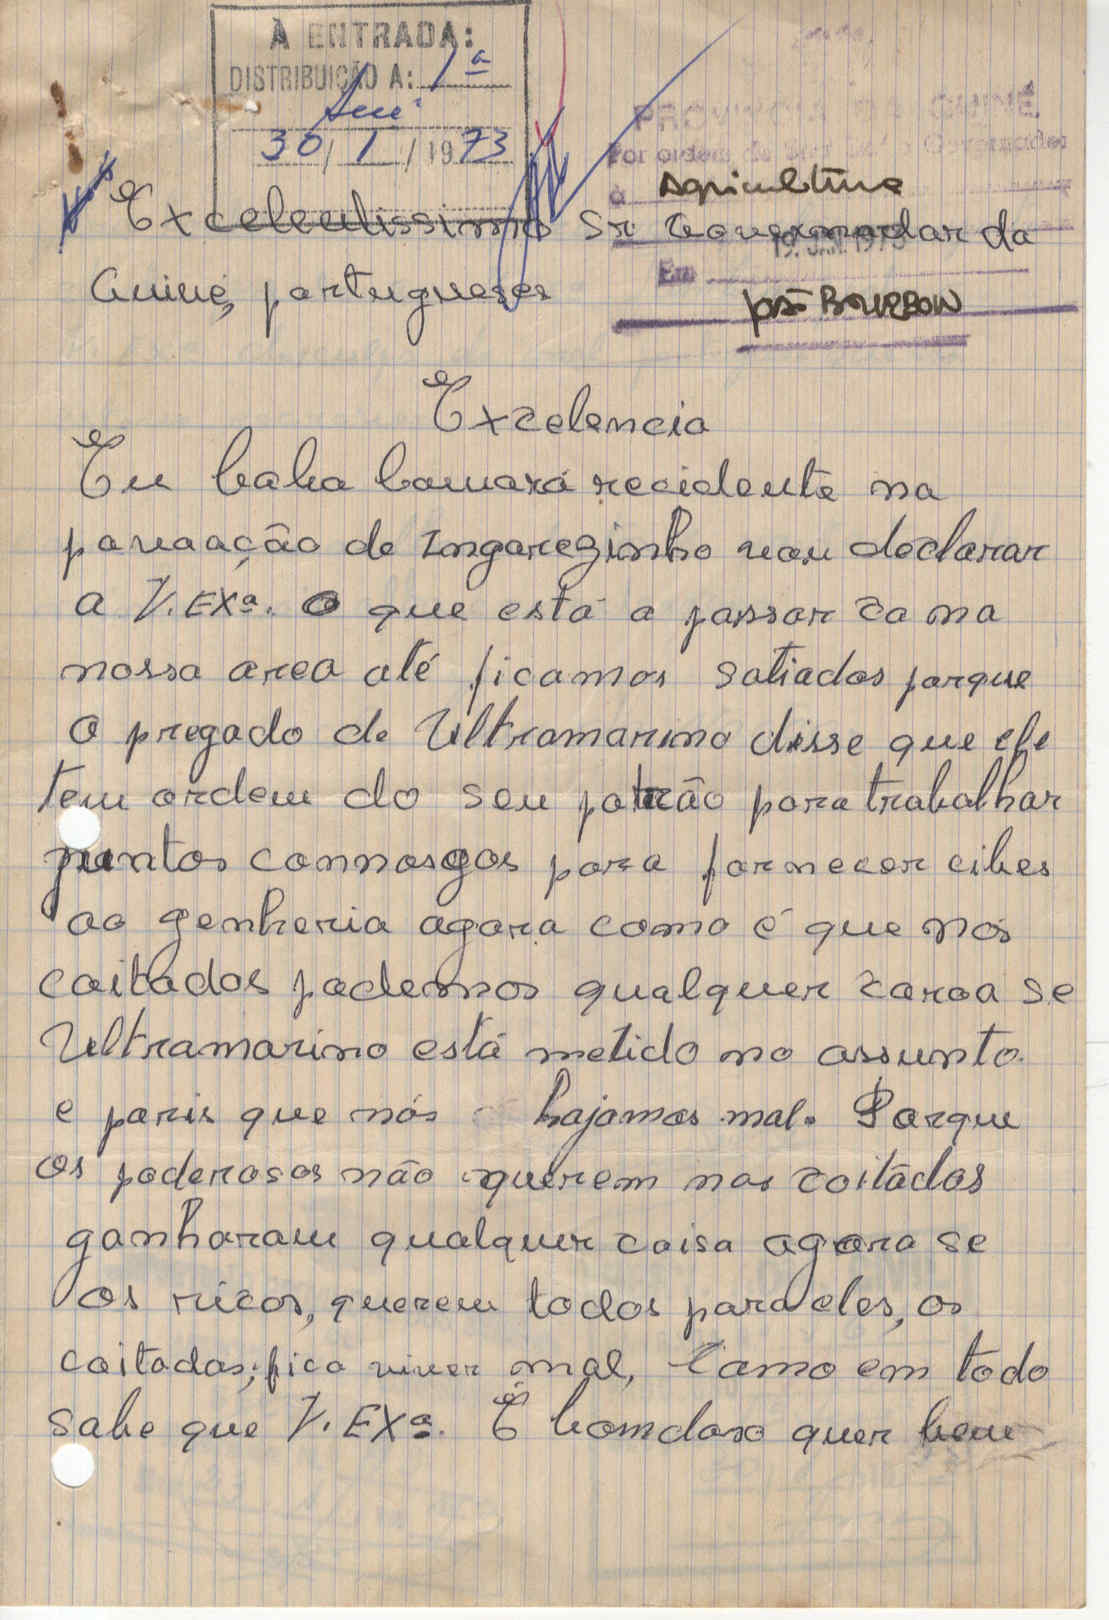 À ENTRADA:
DISTRIBUIÇÃO A: 1ª
30/1/1973
PROVINCIA DA GUINÉ
Por ordem de Sua Exª o Governador
à Agricultura
Em 19. Jan. 1973
José BOURBON
Excelentissimo Sr Governador da
Guiné, portugueses
Excelencia
Eu baba Camará recidente na
pavoação de Ingarezinho vou declarar
a V. EXª. O que está a passar ca na
nossa area até ficamos satiados porque
O pregado de Ultramarino disse que ele
tem ordem do seu patrão para trabalhar
juntos connosgos para fornecer cibes
ao genheria agora como é que nós
coitados podemos qualquer caroa se
Ultramarino está metido no assunto.
e paris que nós hajamos mal. Porque
os poderosos não querem nos coitados
ganharam qualquer coisa agora se
os ricos, querem todos para eles, os
coitados, fica viver mal, Camo em todo
sabe que V. EXª. É bomdoso quer bem